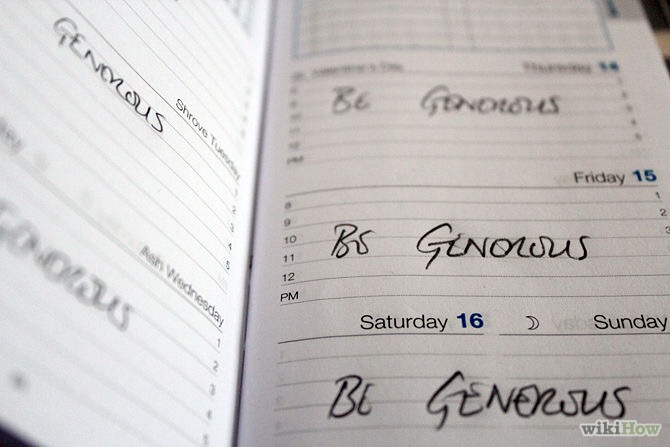 GENEROUS
Shrove Tuesday
1
2
3
4
5
GENEROUS
Ash Wednesday
1
2
3
4
5
St. Valentine's Day Thursday 14
BE GENEROUS
PM
Friday 15
8 1
9 2
10 3
BE GENEROUS
11
12
PM
Saturday 16 Sunday
BE GENEROUS
wikiHow